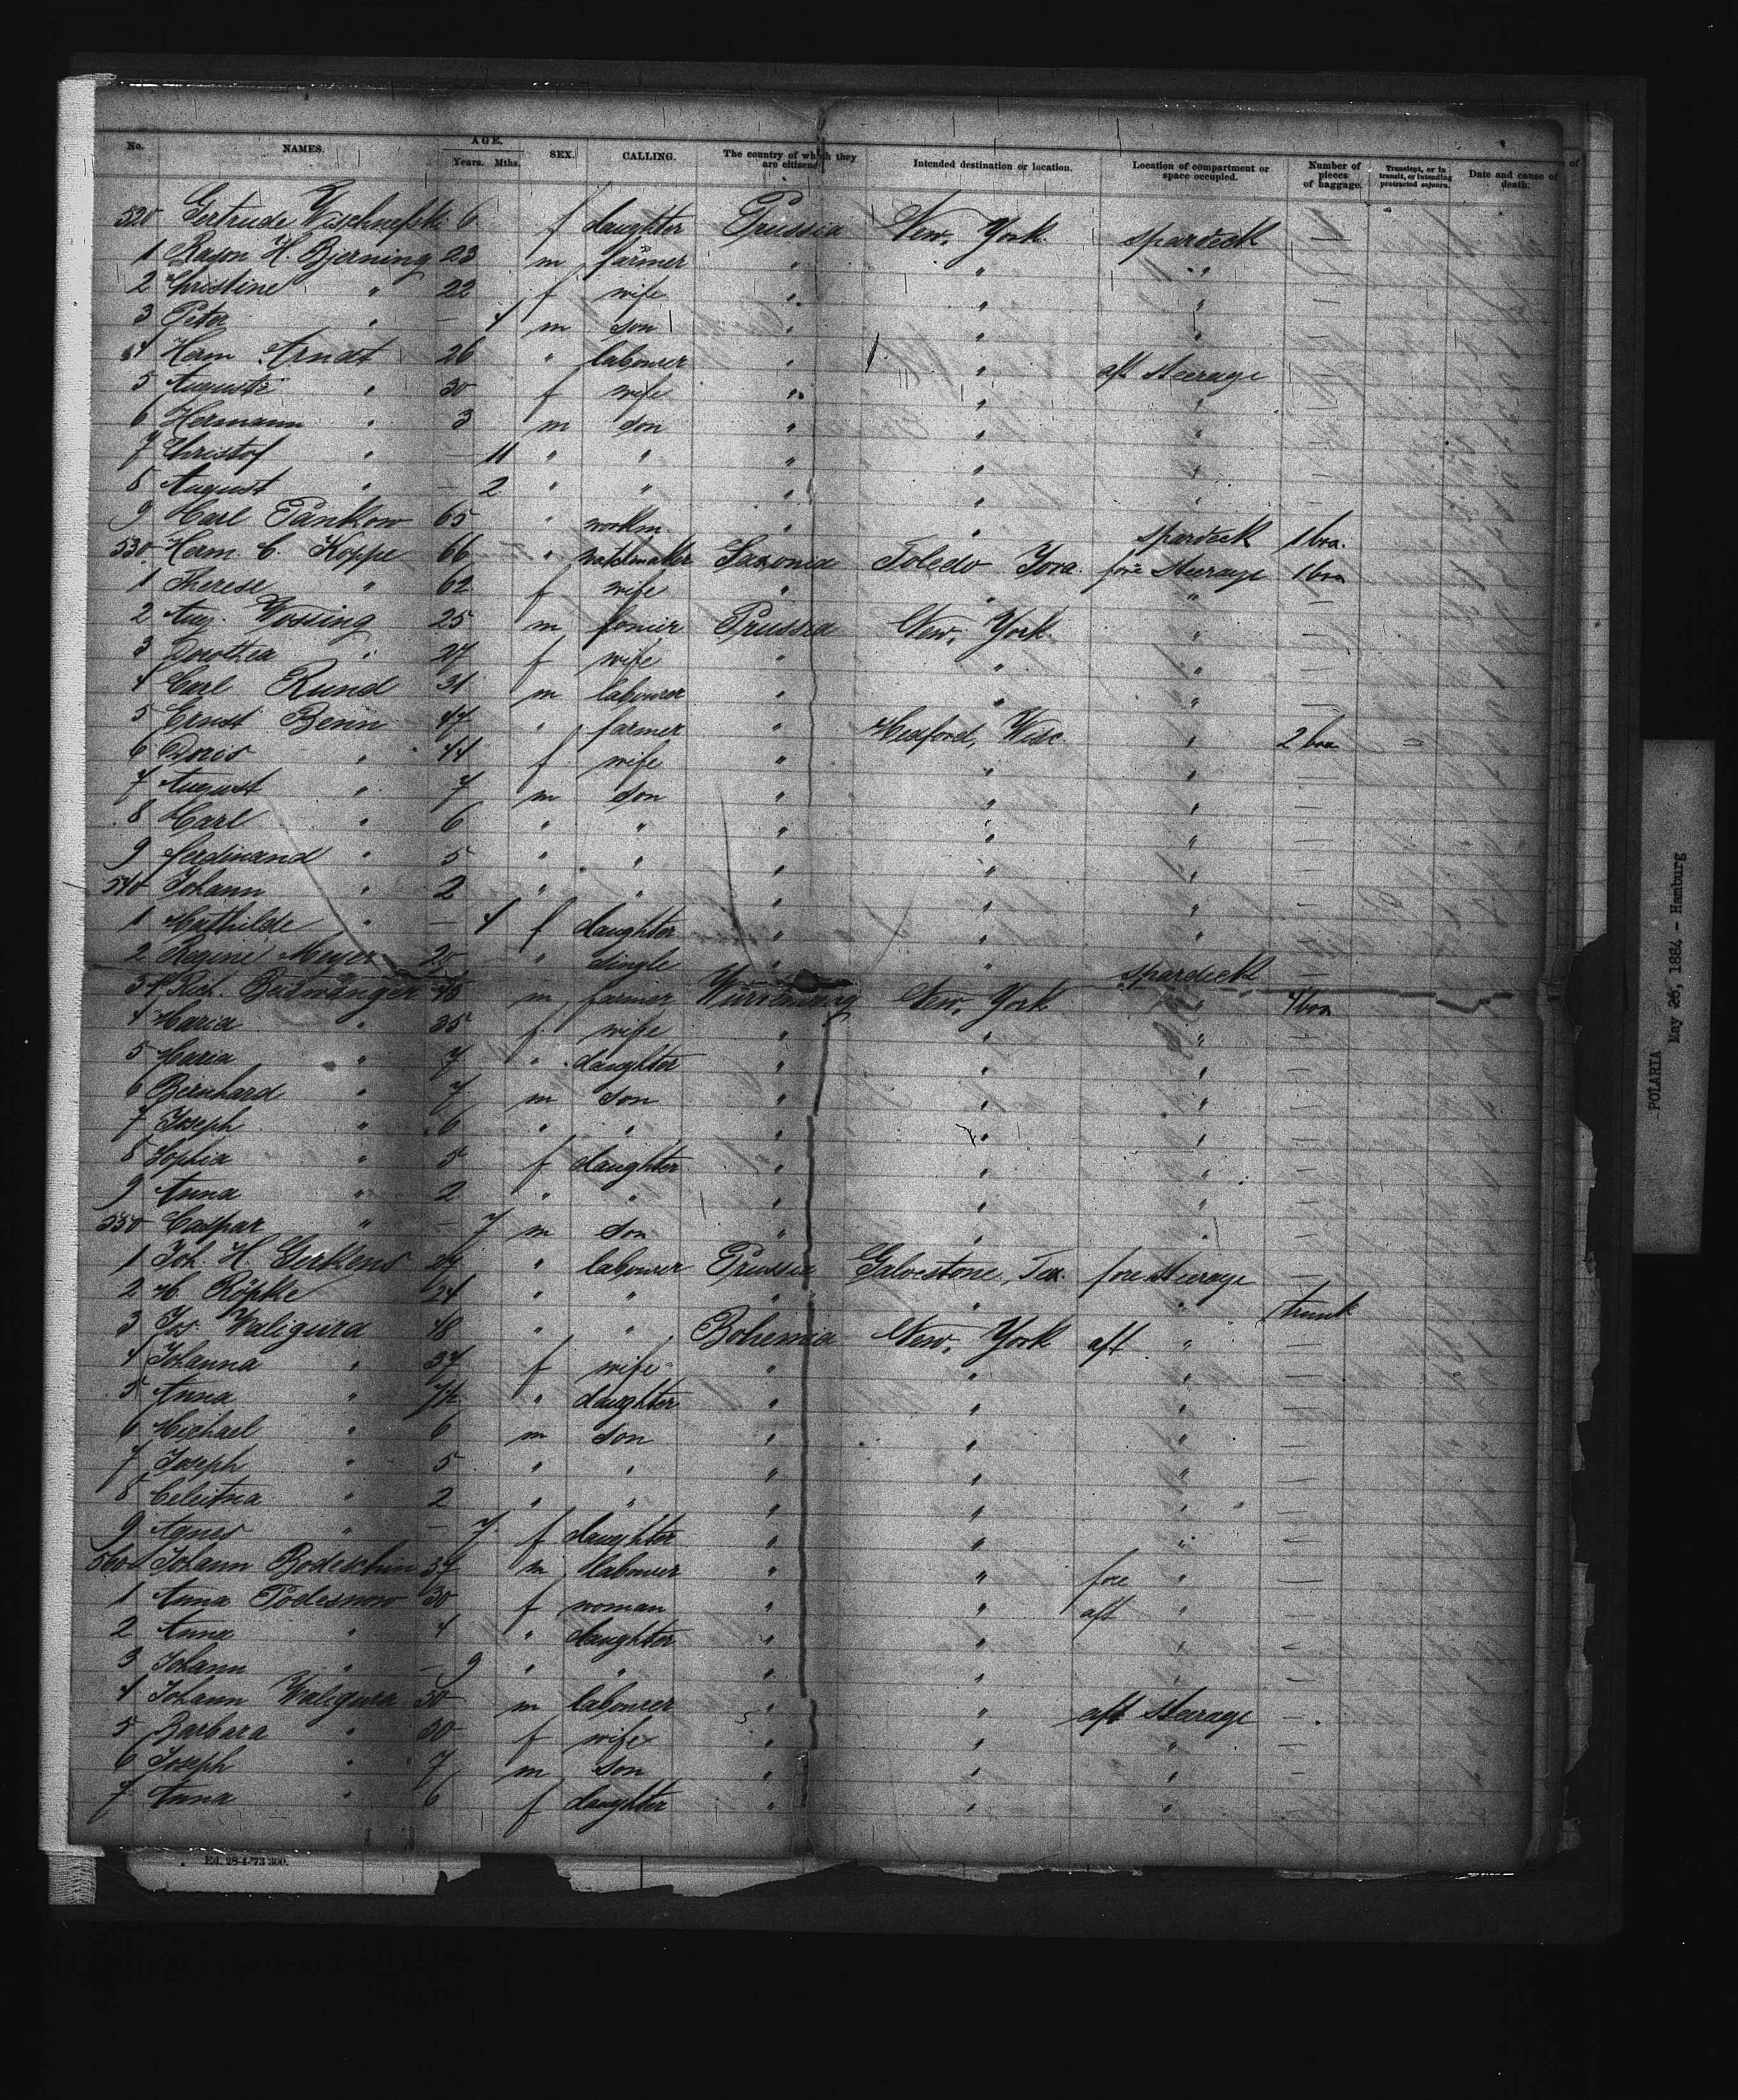 No. NAMES. AGE. Years. Mths. SEX. CALLING. The country of which they are citizens. Intended destination or location. Location of compartment or space occupied. Number of pieces of baggage. Transient, or in transit, or intending protracted sojourn. Date and cause of death.
520 Gertrude 6 f daughter Prussia New York spardeck —
1 Rason H. Bjerning 23 m farmer " " " —
2 Christine " 22 f wife " " " —
3 Peter " — 4 m son " " " —
4 Herm Arndt 26 " labourer " " aft Steerage —
5 Auguste " 30 f wife " " " —
6 Hermann " 3 m son " " " —
7 Christof " — 11 " " " " " —
8 August " — 2 " " " " " —
9 Karl Pankow 65 " workm " " spardeck 1 box
530 Herm. C. Koppe 66 " watchmaker Saxonia Toledo Jova fore Steerage 1 box
1 Therese " 62 f wife " " " —
2 Aug. Wossing 25 m Prussia New York " —
3 Dorothea " 27 f wife " " " —
4 Carl Rund 31 m labourer " " " —
5 Ernst Benn 47 " farmer " Wisc. " 2 box
6 Doris " 44 f wife " " " —
7 August " 7 m son " " " —
8 Karl " 6 " " " " " —
9 Ferdinand " 5 " " " " " —
540 Johann " 2 " " " " " —
1 Mathilde " — 4 f daughter " " " —
2 Regine Meyer 20 " single " " spardeck —
3 farmer Würtemberg New York " 4 box
4 Maria " 35 f wife " " " —
5 Maria " 7 " daughter " " " —
6 Bernhard " 7 m son " " " —
7 Joseph " 6 " " " " " —
8 Sophia " 5 f daughter " " " —
9 Anna " 2 " " " " " —
550 Caspar " — 7 m son " " " —
1 Joh. H. Gerkens " labourer Prussia Galvestone, Tex. fore Steerage —
2 H. Röpke 24 " " " " " trunk
3 Jos. Waligura 48 " " Bohemia New York aft " —
4 Johanna " 37 f wife " " " —
5 Anna " " daughter " " " —
6 Michael " 6 m son " " " —
7 Joseph " 5 " " " " " —
8 " 2 " " " " " —
9 Agnes " — 7 f daughter " " " —
560 Johann Bodeschin 37 m labourer " " fore " —
1 Anna Podesnow 30 f woman " " aft " —
2 Anna " 4 " daughter " " " —
3 Johann " — 9 " " " " " —
4 Johann Waligura 50 m labourer " " aft Steerage —
5 Barbara " 30 f wife " " " —
6 Joseph " 7 m son " " " —
7 Anna " 6 f daughter " " " —
Ed. 28-4-'73 300.
POLARIA
May 26, 1884 - Hamburg